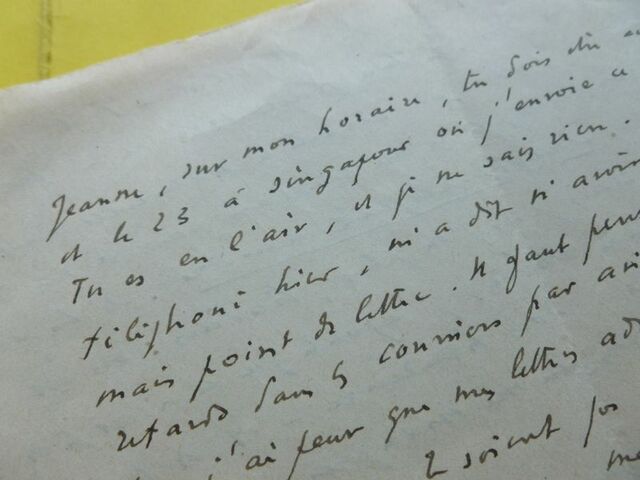 Jeanne, sur mon horaire, tu dois
et le 23 à Singapour où j'envoie
Tu es en l'air, et je ne sais rien.
téléphoné hier, m'a dit
mais point de lettre. Il faut
retards dans les courriers par
j'ai peur que mes lettres
soient